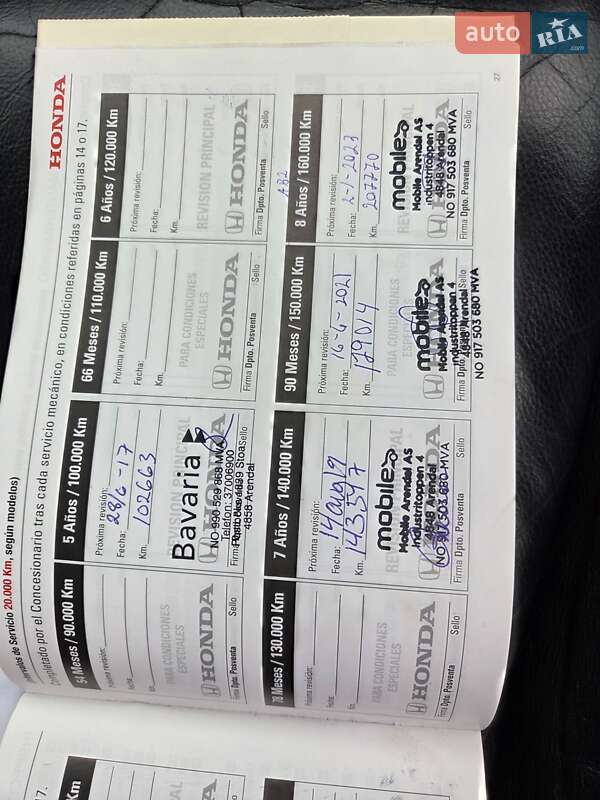 auto RIA.com
HONDA
Intervalos de Servicio 20.000 Km, según modelos)
Completado por el Concesionario tras cada servicio mecánico, en condiciones referidas en páginas 14 o 17.
54 Meses / 90.000 Km
Próxima revisión:
Fecha:
Km.
PARA CONDICIONES
ESPECIALES
HONDA
Firma Dpto. Posventa Sello
5 Años / 100.000 Km
Próxima revisión:
Fecha: 28/6-17
Km. 102663
REVISION PRINCIPAL
HONDA
Bavaria
NO-990 529 863 MVA
Telefon: 37006900
4858 Arendal
66 Meses / 110.000 Km
Próxima revisión:
Fecha:
Km.
PARA CONDICIONES
ESPECIALES
HONDA
Firma Dpto. Posventa Sello
6 Años / 120.000 Km
Próxima revisión:
Fecha:
Km.
REVISION PRINCIPAL
HONDA
Firma Dpto. Posventa Sello
78 Meses / 130.000 Km
Próxima revisión:
Fecha:
Km.
PARA CONDICIONES
ESPECIALES
HONDA
Firma Dpto. Posventa Sello
7 Años / 140.000 Km
Próxima revisión:
Fecha: 14 aug 19
Km. 143547
mobile
Mobile Arendal AS
Industritoppen 4
4848 Arendal
NO 917 503 680 MVA
Firma Dpto. Posventa Sello
90 Meses / 150.000 Km
Próxima revisión:
Fecha: 16-4-2021
Km. 179014
PARA CONDICIONES
ESPECIALES
mobile
Mobile Arendal AS
Industritoppen 4
4848 Arendal
NO 917 503 680 MVA
8 Años / 160.000 Km
A32
Próxima revisión:
Fecha: 2-1-2023
Km. 207770
mobile
Mobile Arendal AS
Industritoppen 4
4848 Arendal
NO 917 503 680 MVA
Firma Dpto. Posventa Sello
27
17.
Km
Km